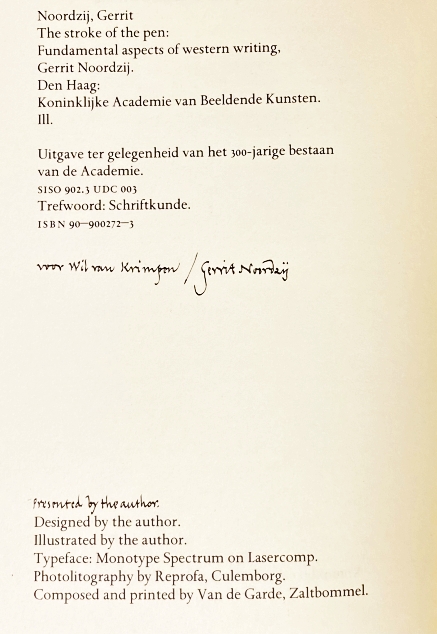 Noordzij, Gerrit
The stroke of the pen:
Fundamental aspects of western writing,
Gerrit Noordzij.
Den Haag:
Koninklijke Academie van Beeldende Kunsten.
Ill.
Uitgave ter gelegenheid van het 300-jarige bestaan
van de Academie.
SISO 902.3 UDC 003
Trefwoord: Schriftkunde.
ISBN 90–900272–3
voor Wil van Krimpen / Gerrit Noordzij
Presented by the author.
Designed by the author.
Illustrated by the author.
Typeface: Monotype Spectrum on Lasercomp.
Photolitography by Reprofa, Culemborg.
Composed and printed by Van de Garde, Zaltbommel.